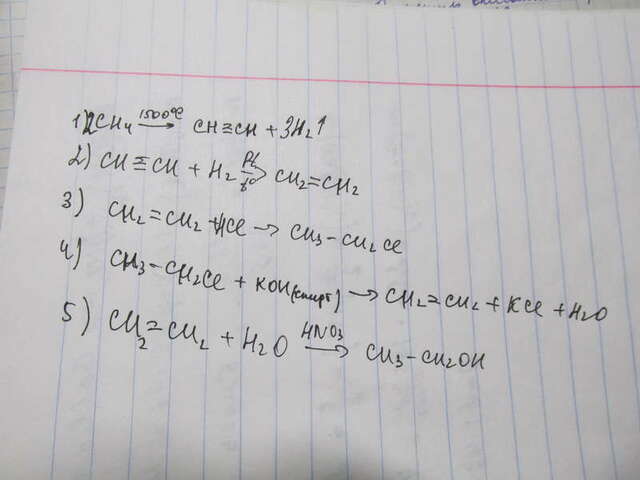 1) 2CH₄ 1500°C → CH≡CH + 3H₂↑
2) CH≡CH + H₂ Pt t° → CH₂=CH₂
3) CH₂=CH₂ + HCl → CH₃-CH₂Cl
4) CH₃-CH₂Cl + KOH (спирт) → CH₂=CH₂ + KCl + H₂O
5) CH₂=CH₂ + H₂O HNO₃ → CH₃-CH₂OH